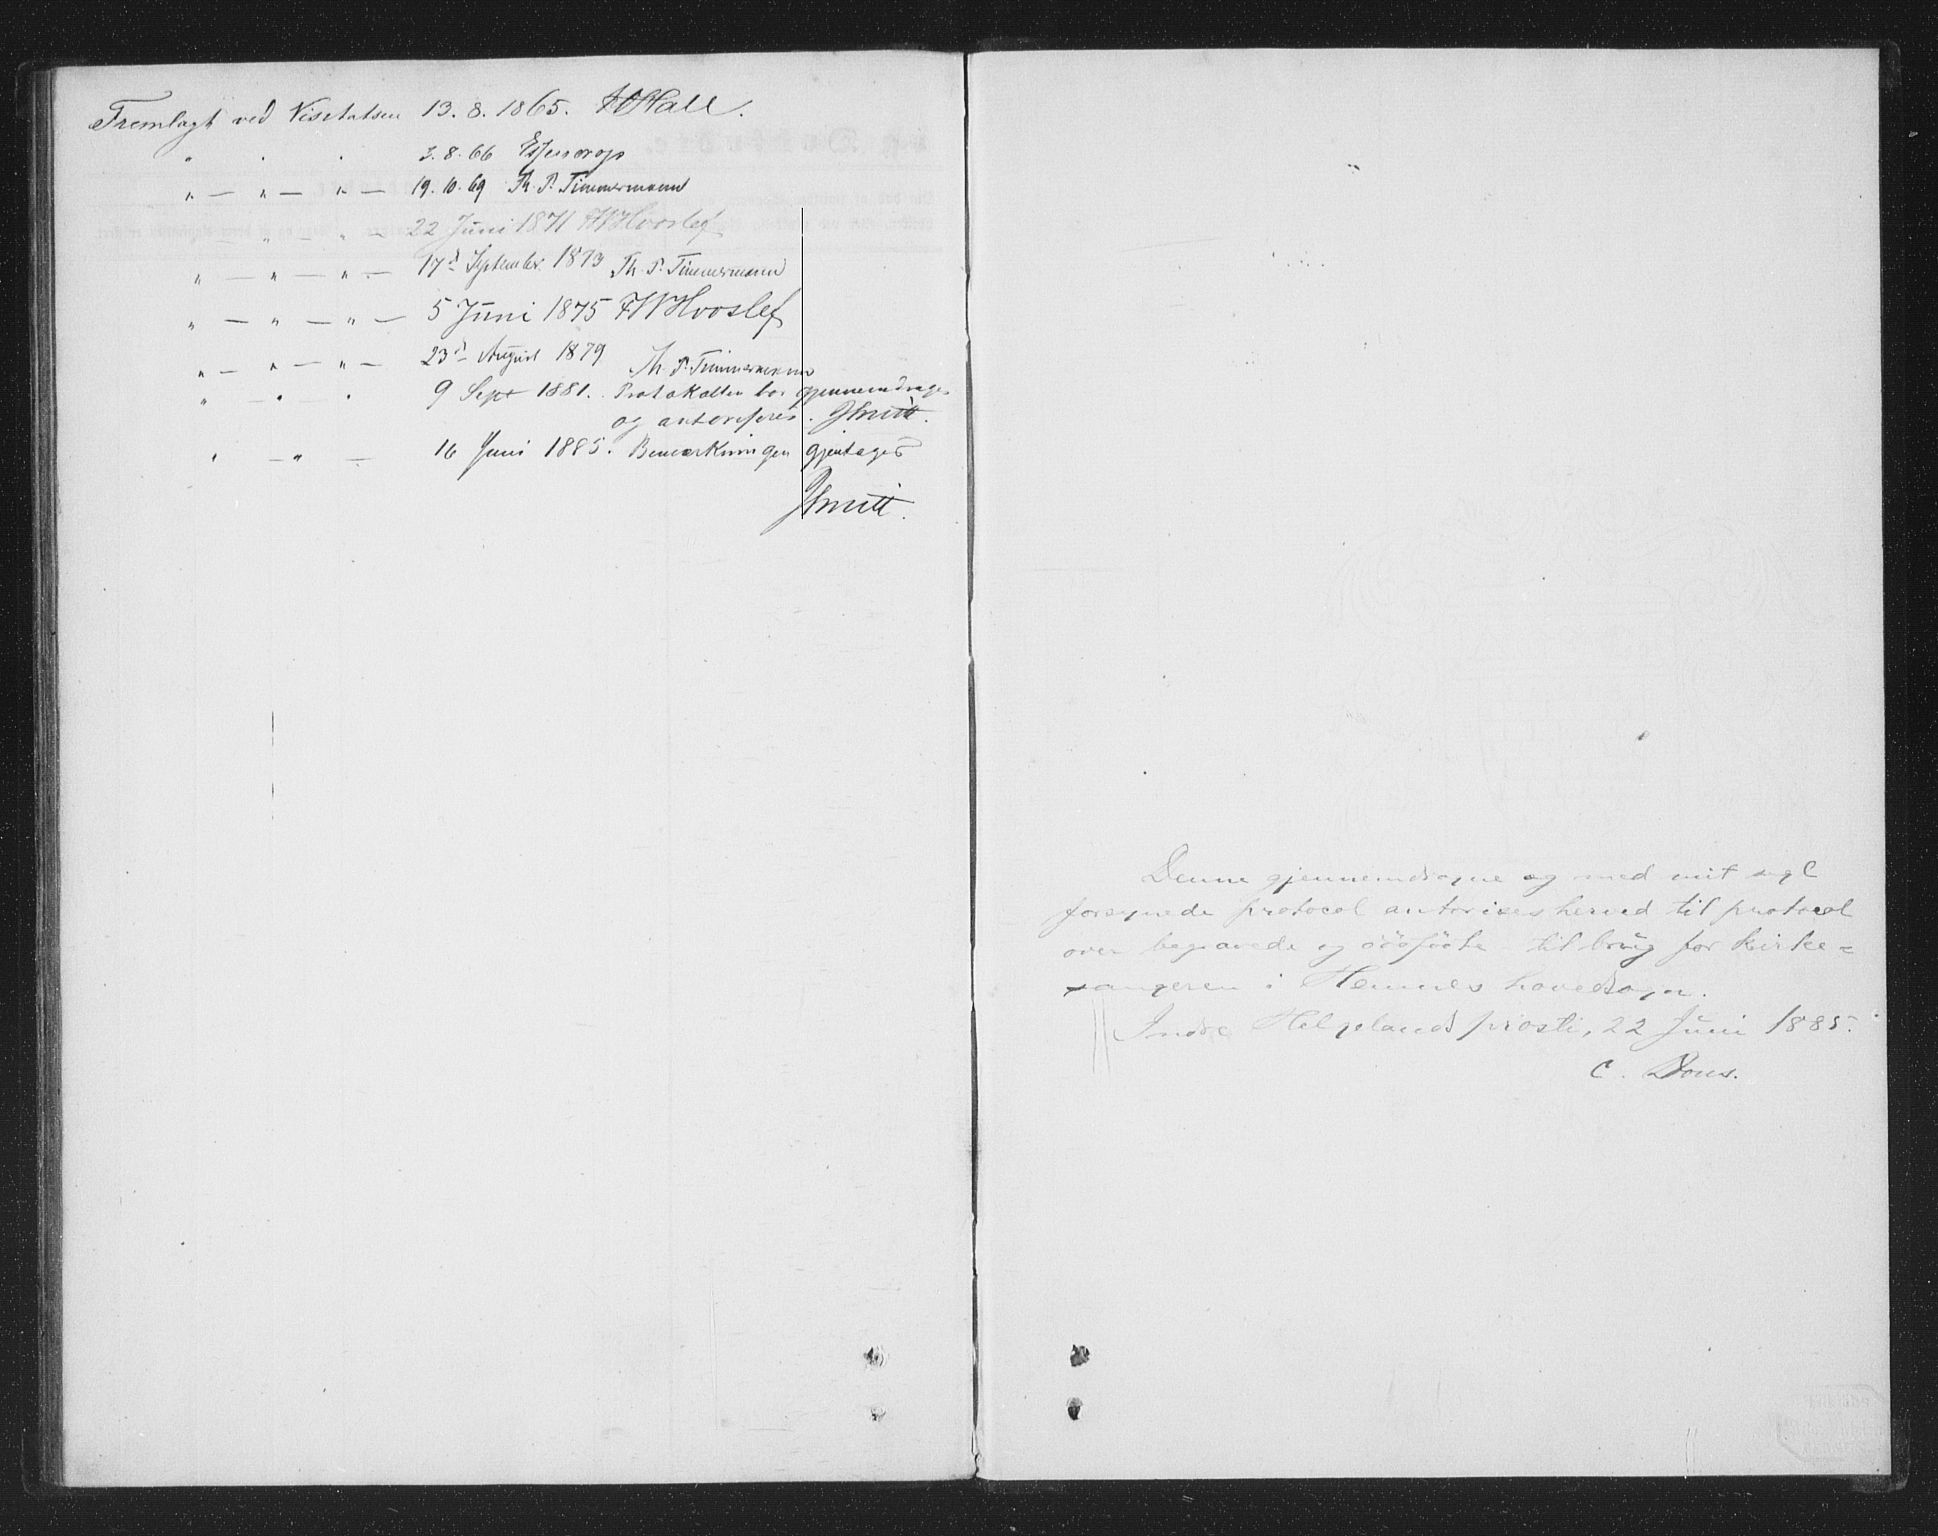 Fremlagt ved Visitatsen 13.8.1865. Hall.
" . . 3.8.66 Essendrop
" — " — " — 19.10.69 Th. P. Timmermann
" — " — 22 Juni 1871 FW Hvoslef
" — " — " — 17d September 1873 Th. P. Timmermann
" — " — " — 5 Juni 1875 FW Hvoslef
" — " — " — 23d August 1879 Th. P. Timmermann
" — " . 9 Sept 1881. Protokollen bør gjennemdrages
og autoriseres. Smitt.
" — " — 16 Juni 1885. Bemærkningen gjentages
Smitt.
Denne gjennemdragne og med mit segl
forsynede protocol autorises herved til protocol
over begravede og dödfödte til brug for kirke=
sangeren i Hemnes hovedsogn.
Indre Helgelands prosti, 22 Juni 1885.
C. Dons.